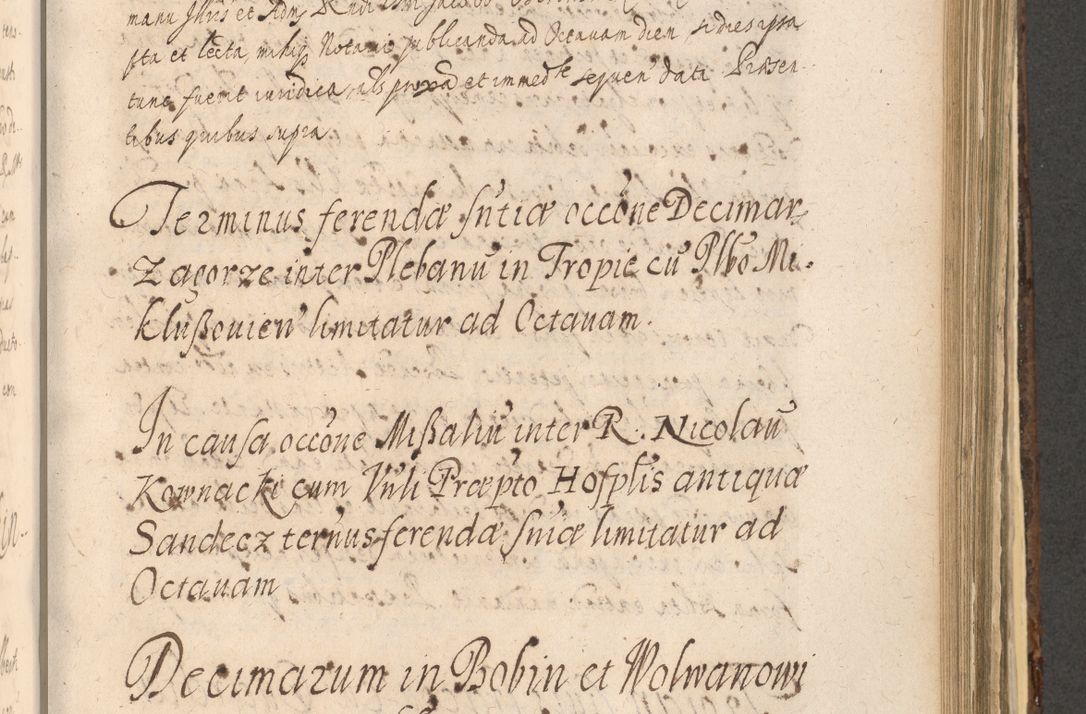 manu Illris et Adm Rndi
sta et lecta, mihiq Notario publicanda ad Octauam diem si dies ipsa
tunc fuerit iuridica, als proxa et immedte sequen data Præsen
tibus quibus supra
Terminus ferendæ sntiæ occone Decimar
Zagorze inter Plebanu in Tropie cu Plbo Mi
klußouien limitatur ad Octauam.
In causa occone Mißaliu inter R. Nicolau
Kownacki cum Vnli Præpto Hosplis antiquæ
Sandecz ternus ferendæ sniæ limitatur ad
Octauam
Decimarum in Bobin et Wolwanowi